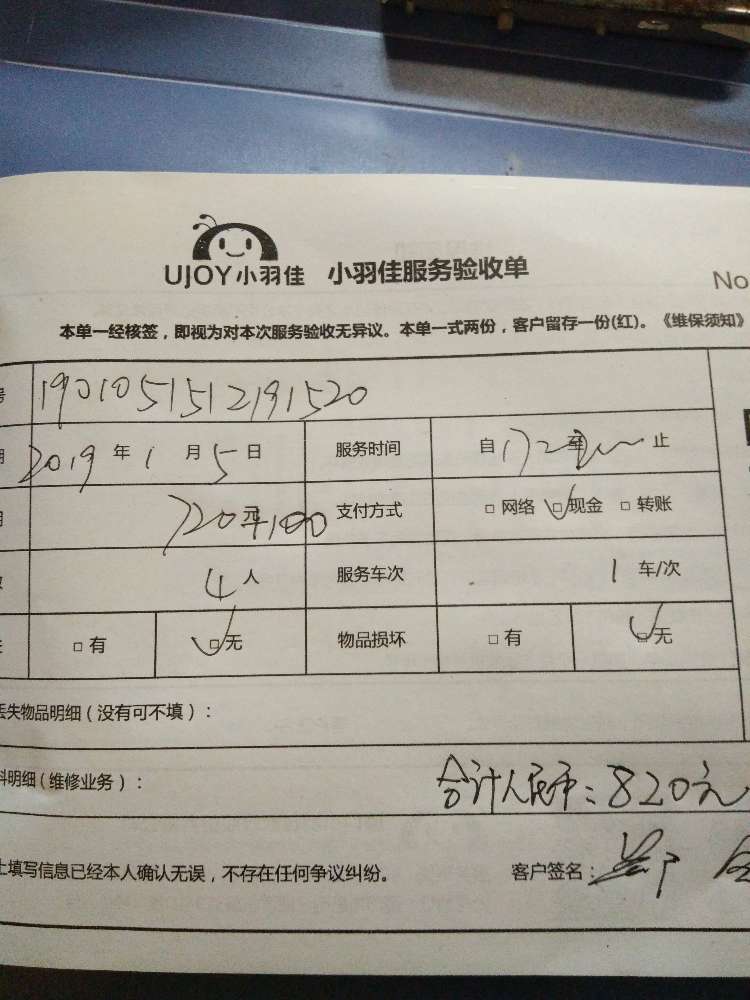 UJOY小羽佳 小羽佳服务验收单
No
本单一经核签，即视为对本次服务验收无异议。本单一式两份，客户留存一份(红)。《维保须知》
号 1901051512191520
期 2019年1月5日 服务时间 自 至 止
用 720元+100 支付方式 □网络 □现金 □转账
数 4人 服务车次 1车/次
□有 □无 物品损坏 □有 □无
丢失物品明细（没有可不填）：
料明细（维修业务）： 合计人民币：820元
上填写信息已经本人确认无误，不存在任何争议纠纷。 客户签名：